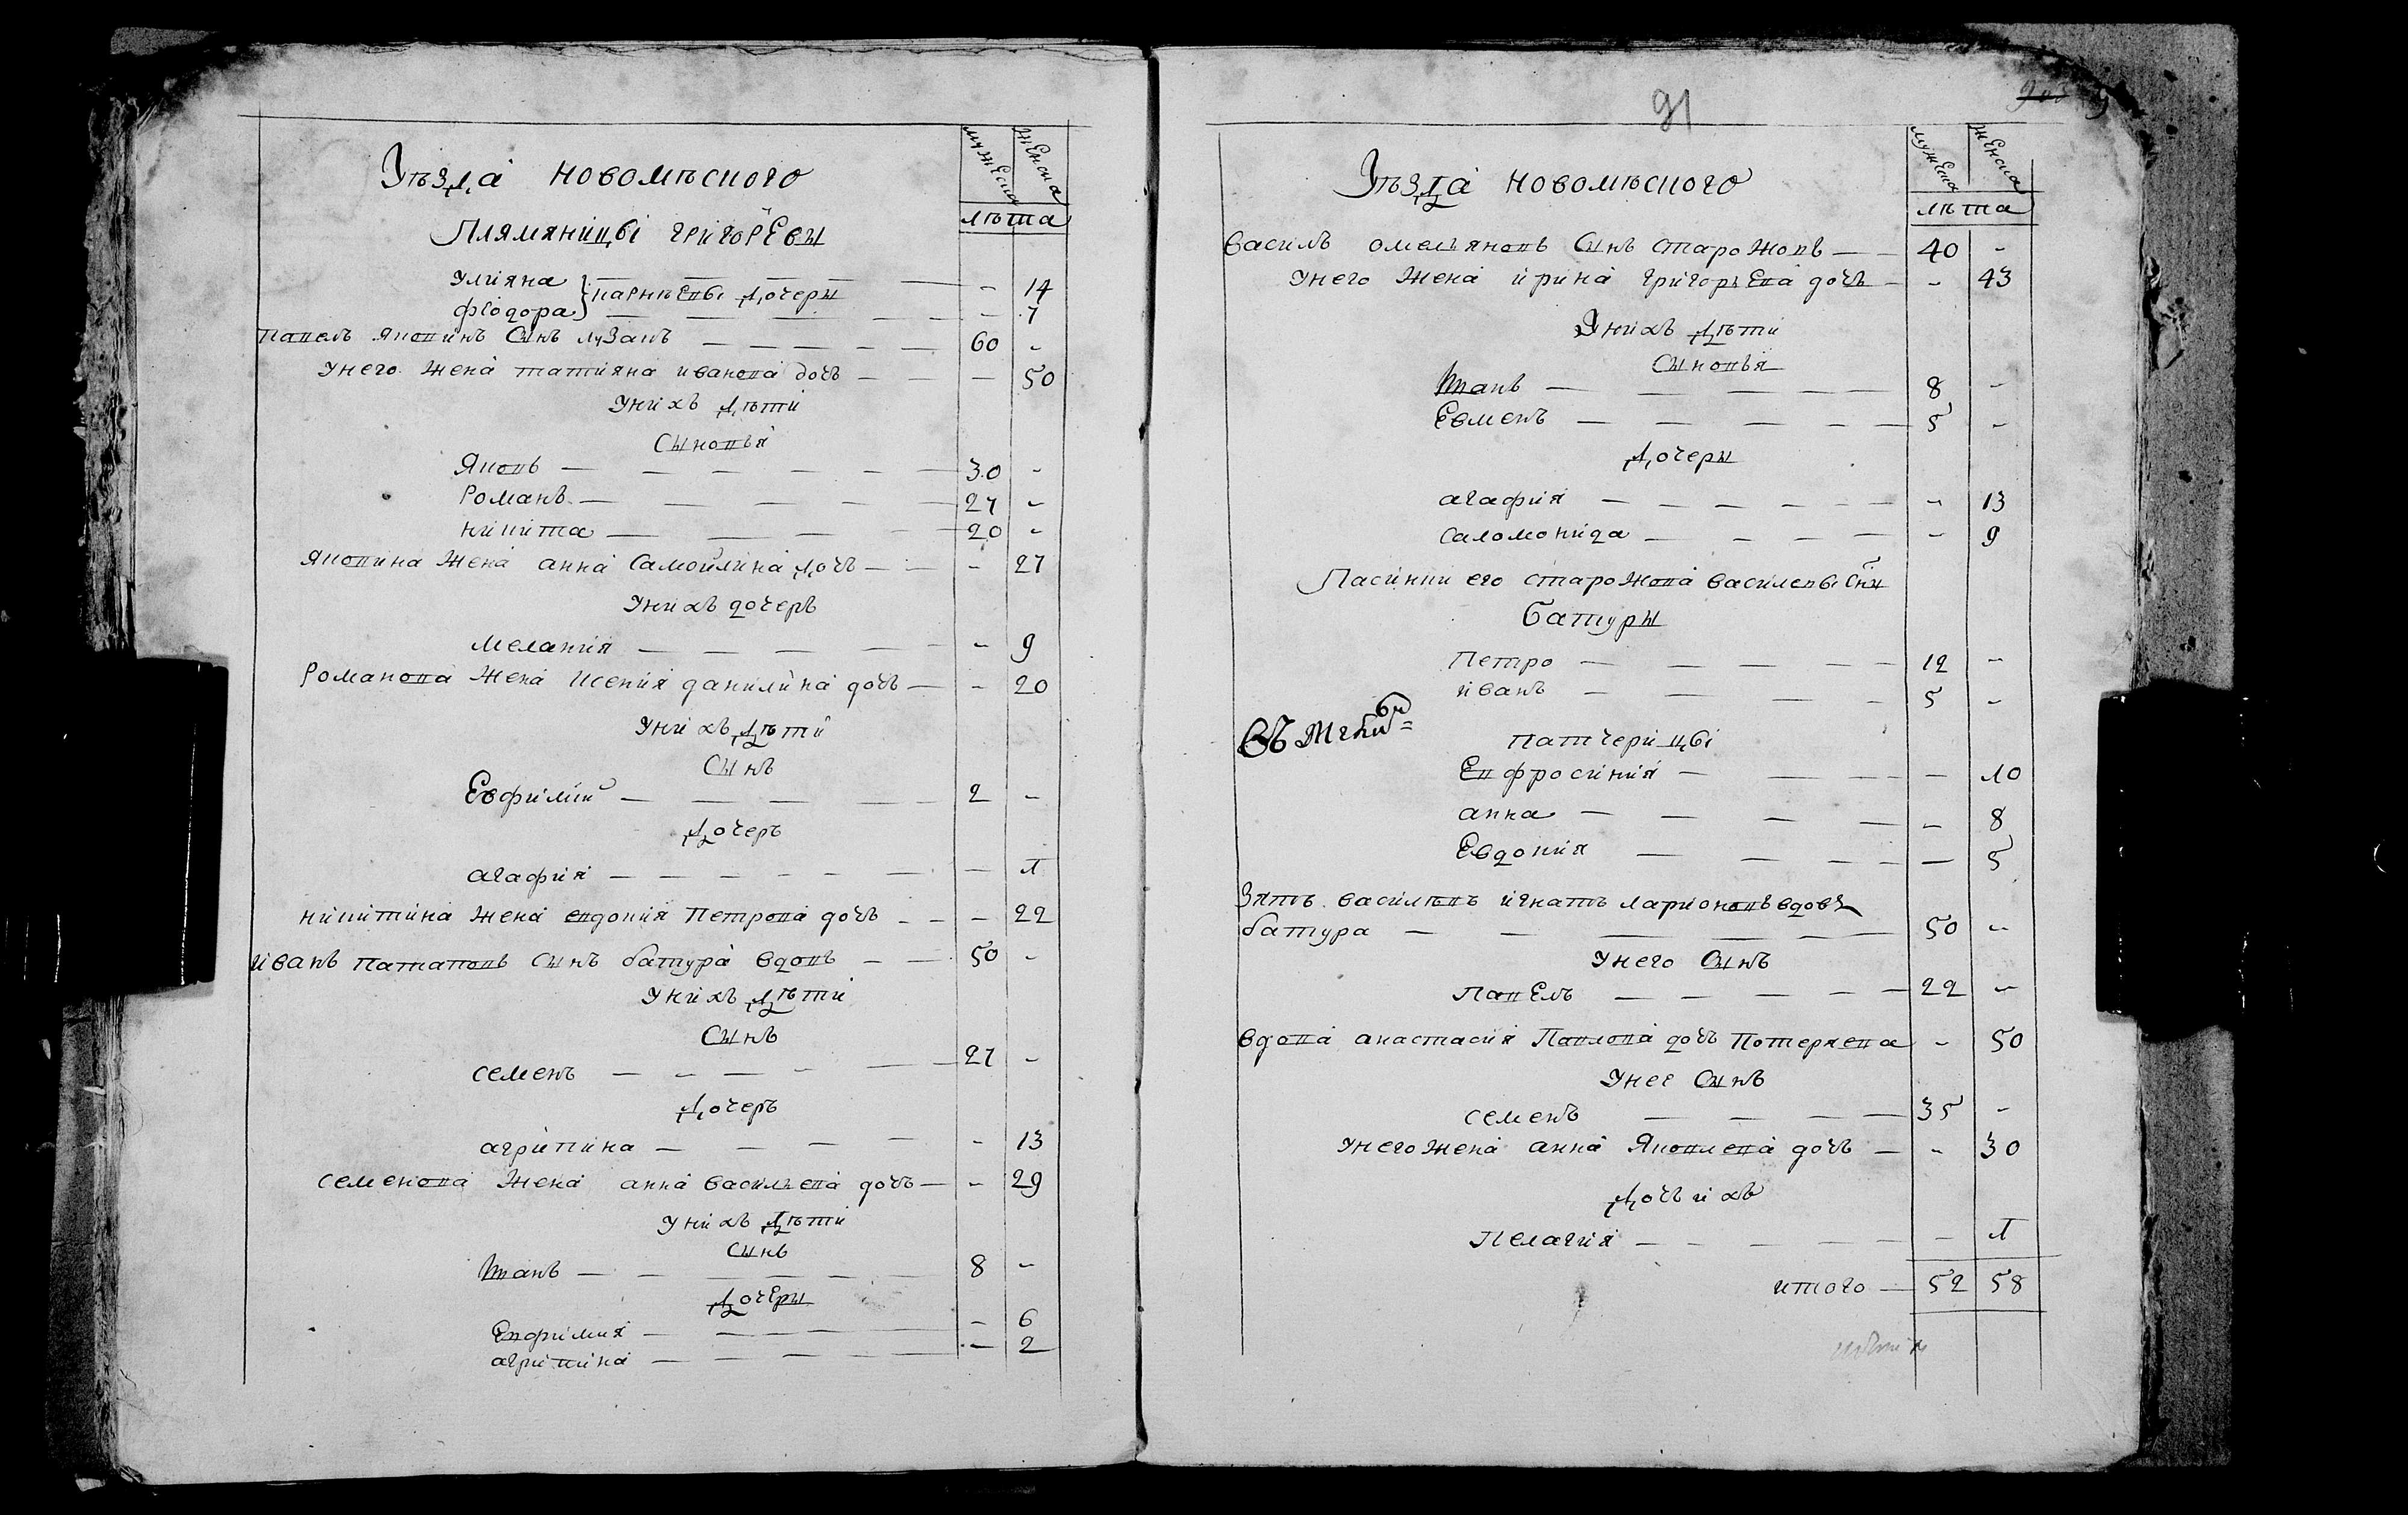 Уѣзда новомѣского
мужеска
женска
лѣта
Плямяницы григорЕвы
Улияна } карнѣЕвы дочеры — 14
фтодора } — 7
павелъ яковинъ Сынъ лузанъ 60 -
Унего жена татияна иванова дочь — 50
Унихъ дѣти
Сыновья
Яковъ — 30 -
Романъ — 27 -
никита — 20 -
яковина жена анна Самойлина дочь — - 27
Унихъ дочеръ
мелания — - 9
Романова жена Ксения данилина дочь — - 20
Унихъ дѣти
Сынъ
Евфимий — 2 -
Дочеръ
агафия — - 1
никитина жена евдокия Петрова дочь - 22
иванъ патаповъ Сынъ батура вдовъ — 50 -
Унихъ дѣти
Сынъ
семенъ — 27 -
Дочеръ
агрипина — - 13
семенова жена анна васильева дочь — - 29
Унихъ дѣти
Сынъ
Иванъ — 8 -
Дочеры
Евфимия — - 6
агрипина — - 2
91
Уѣзда новомѣского
мужеска
женска
лѣта
василь омельяновъ Сынъ старожовъ — 40 -
Унего жена ирина григорьева дочь - - 43
Унихъ дѣти
Сыновья
Иванъ — 8 -
Евменъ — 5 -
Дочеры
агафия — - 13
саломонида — - 9
Пасинки его старожова василевы Сны
батуры
Петро — 12 -
иванъ — 5 -
патчерицы
Евфросиния — - 10
анна — - 8
Евдокия — - 5
Зять василѣвъ игнатъ ларионовъ вдовъ
батура — 50 -
Унего Сынъ
Павелъ — 22 -
вдова анастасия Павлова дочь Потеряева - 50
Унее Сынъ
семенъ — 35 -
Унего жена анна Яковлева дочь — - 30
Дочь ихъ
Пелагия — - 1
итого — 52 58